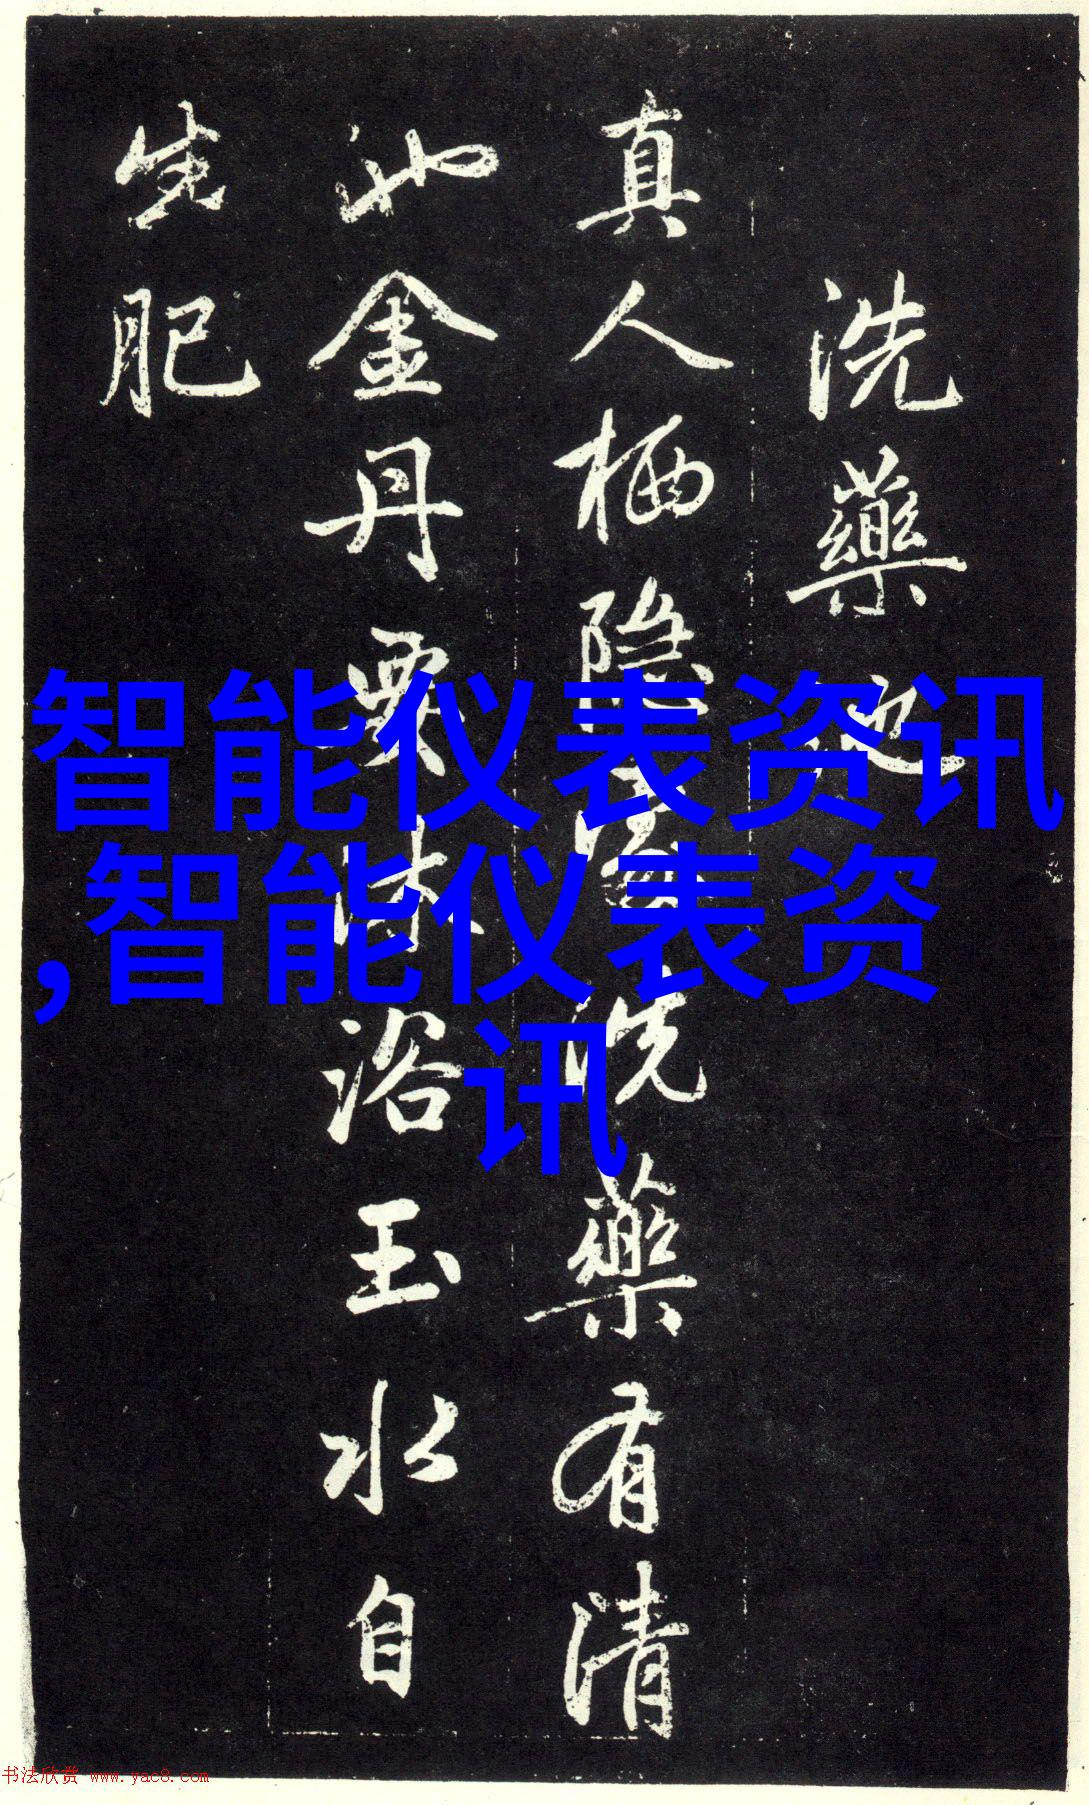 洗藥池
真人栖隐處洗藥有清
池金丹要沐浴玉水自
生肥
智能仪表资讯
,智能仪表资
讯
书法欣赏 www.yac8.com